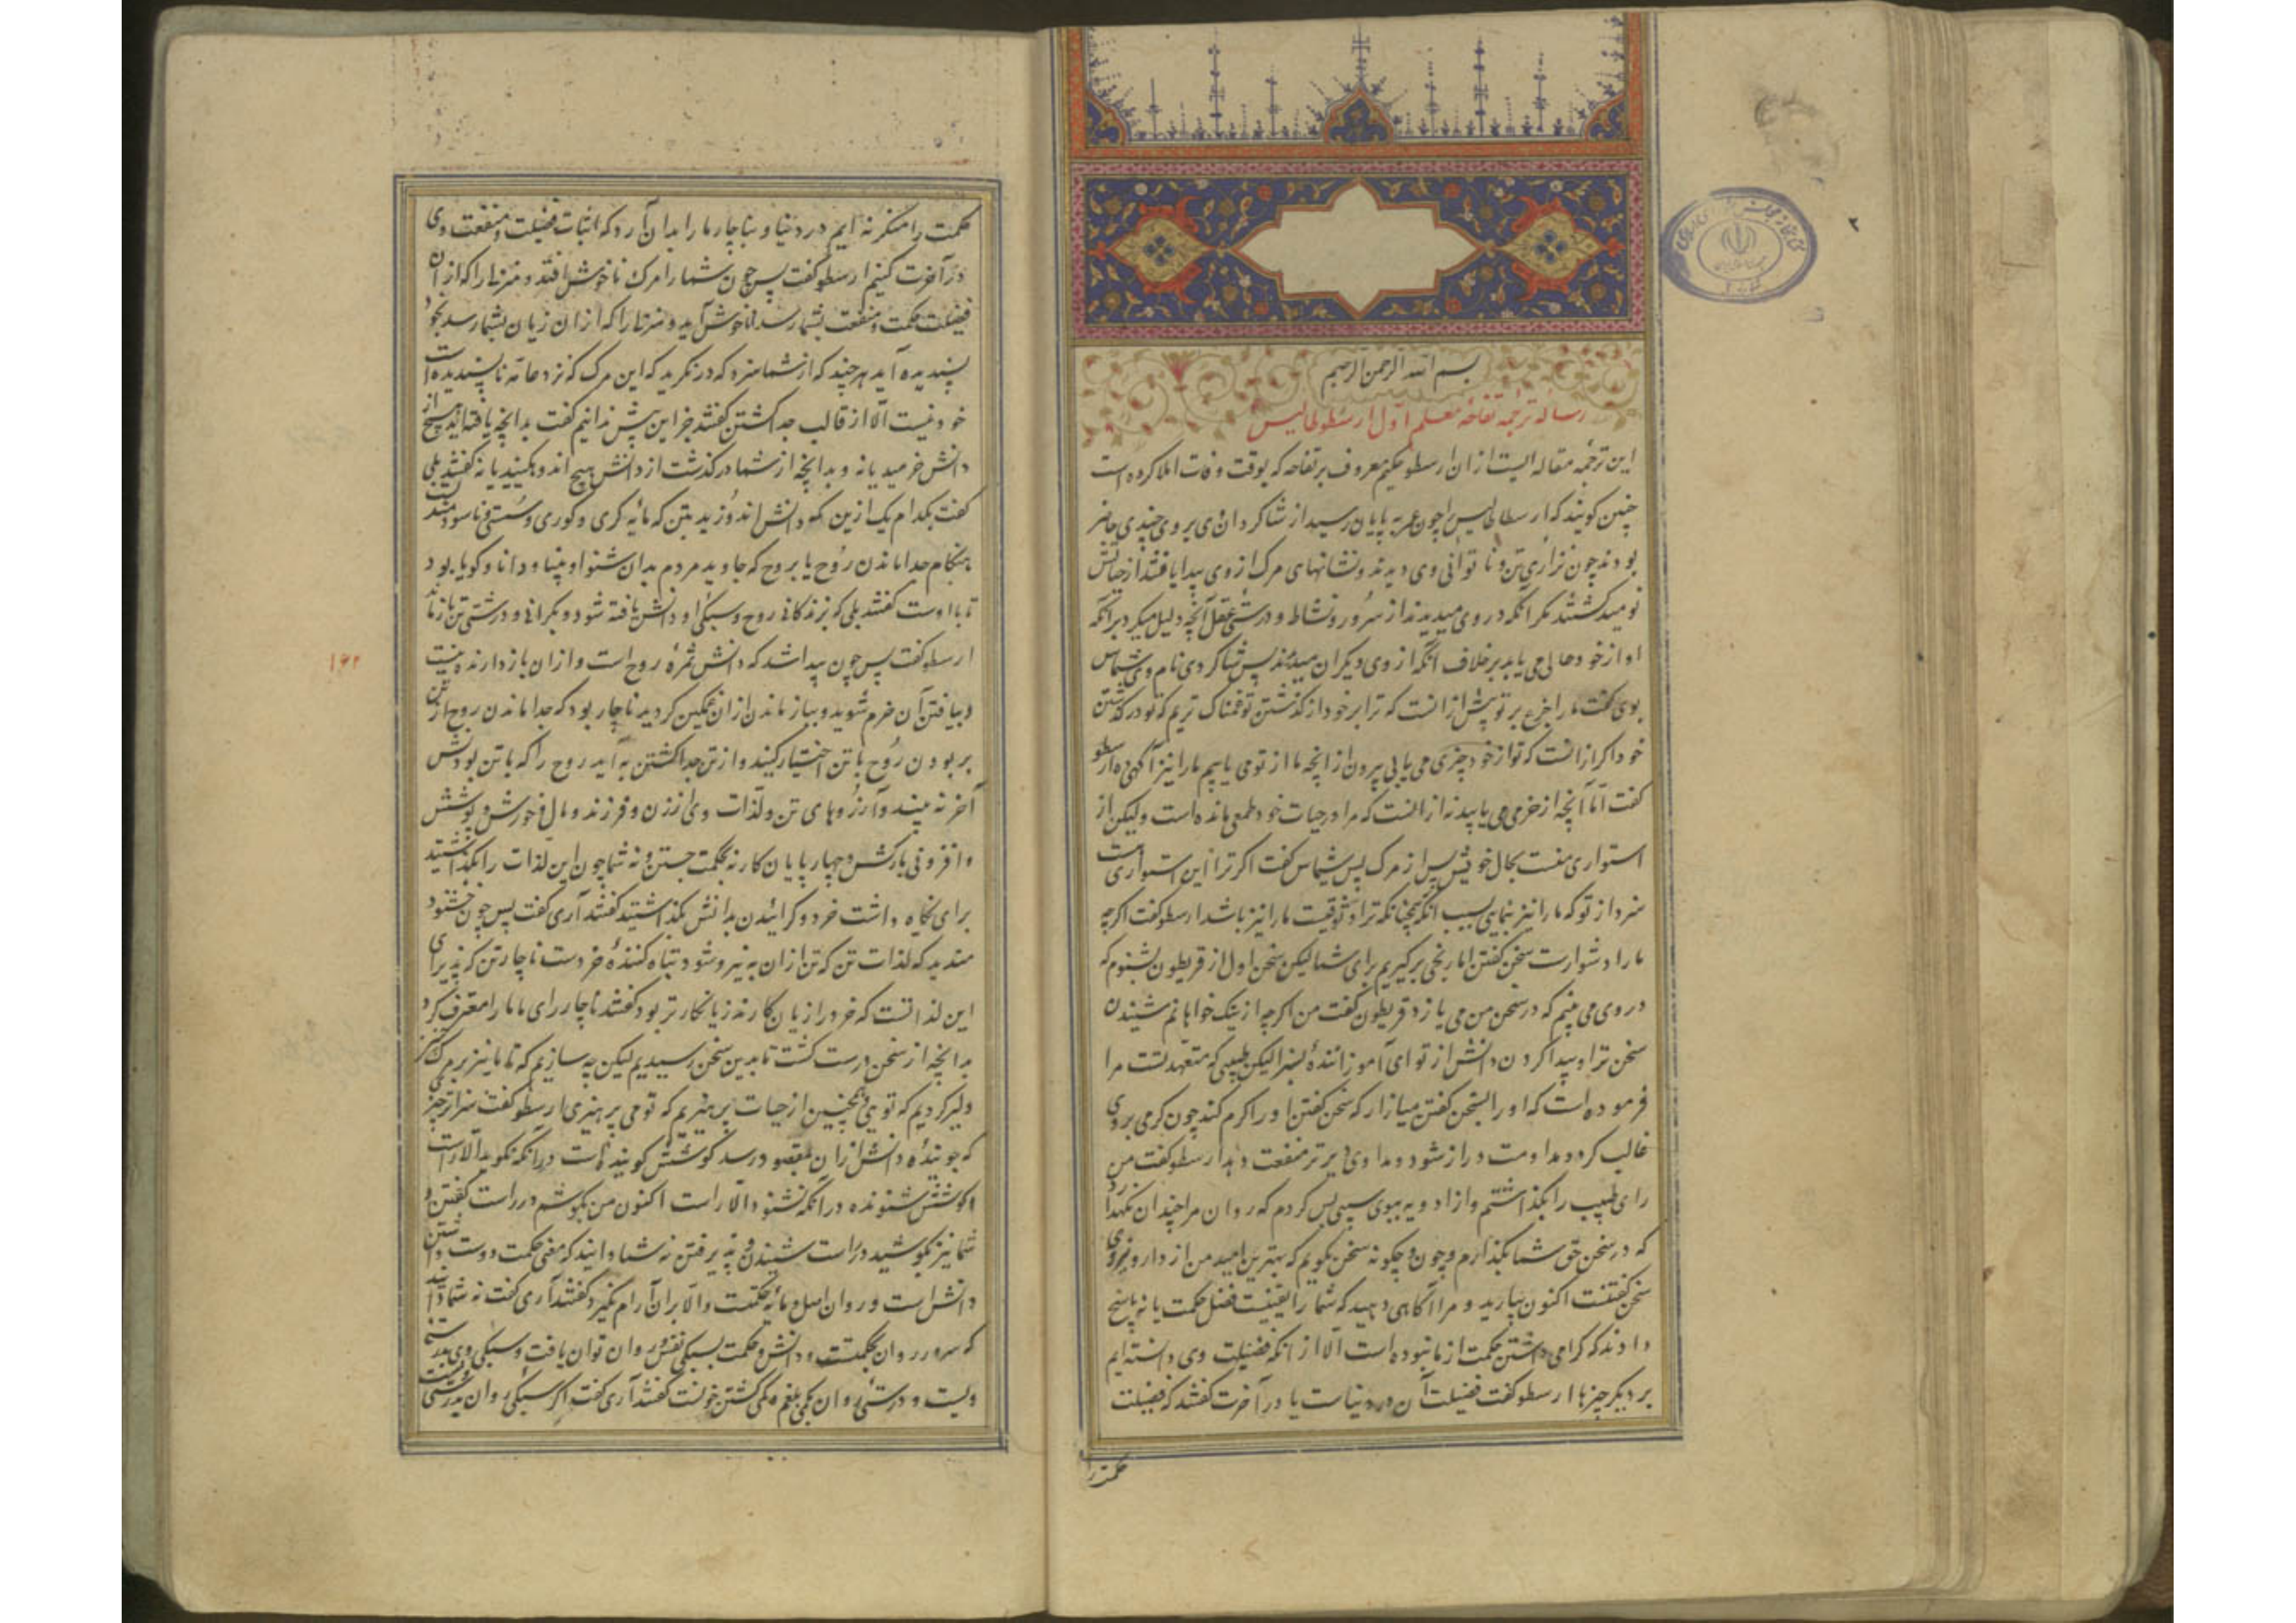 بسم الله الرحمن الرحیم
رساله ترجمه تفاحه معلم اول ارسطوطالیس
این ترجمه مقاله ایست از ان ارسطو حکیم معروف بر تفاحه که بوقت وفات املا کرده است
چنین کویند که ارسطاطالیس را چون عمر به پایان رسید از شاکردان وی بروی چندی حاضر
بودند چون نزاری تن و نا توانی وی دیدند و نشانهای مرک از وی پیدا یافتند از حیاتش
نومید کشتند مکر آنکه در وی میدیدند از سرور و نشاط و درستی عقل آنچه دلیل میکرد برانکه
او از خود حالی می یابد برخلاف آنکه از وی دیکران میبینند پس شاکردی نام وی شیماس
بوی کفت ما را جزع بر تو بیش از انست که ترا بر خود از کذشتن تو غمناک تریم که تو در کذشتن
خود اکر از انست که تو از خود چیزی می یابی بیرون از انچه ما از تو می یابیم ما را نیز آکهی ده ارسطو
کفت اما آنچه از خرمی می یابید نه از انست که مرا در حیات خود طمعی مانده است ولیکن از
استواری منست بحال خویش پس از مرک پس شیماس کفت اکر ترا این استواری است
سزد از تو که ما را نیز بنمایی سبب آنکه همچنانکه ترا وثوقیست ما را نیز باشد ارسطو کفت اکرچه
ما را دشوارست سخن کفتن اما رنجی برکیریم برای شما لیکن سخن اول از قریطون بشنوم که
در وی می بینم که در سخن من می یازد قریطون کفت من اکرچه از نیک خواهانم شنیدن
سخن ترا و پیدا کردن دانش از تو ای آموزانندهٔ بسزا لیکن طبیبی که متعهد تست مرا
فرموده است که او را بسخن کفتن میازار که سخن کفتن او را کرم کند چون کرمی بروی
غالب کردد مداومت دراز شود و مداوی دیرتر منفعت دهد ارسطو کفت من
رای طبیب را بکذاشتم و از ادویه ببوی سیبی بس کردم که روان مرا چندان نکهدارد
که در سخن حق شما بکذارم و چون و چکونه سخن نکویم که بهترین امید من از دارو نیروی
سخن کفتنست اکنون بیارید و مرا آکاهی دهید که شما را یقینست فضل حکمت یا نه پاسخ
دادند که کرامی داشتن حکمت از ما نبوده است الا از انکه فضیلت وی دانسته ایم
بر دیکر چیزها ارسطو کفت فضیلت آن در دنیاست یا در آخرت کفتند که فضیلت
حکمت را
حکمت را منکر نه ایم در دنیا و بناچار ما را بدان آرد که اثبات فضیلت و منفعت وی
در آخرت کنیم ارسطو کفت پس چون شما را مرک ناخوش افتد و منزلی را که از ان
فضیلت حکمت و منفعت بشما رسد ناخوش آید و منزلی را که از ان زیان بشما رسد نیکو
پسندیده آید هرچند که از شما سزد که در نکرید که این مرک که نزد عامه ناپسندیده است
خود نیست الا از قالب جدا کشتن کفتند جز این بیش ندانیم کفت بدانچه یافته اید هیچ از
دانش خرمید یا نه و بدانچه از شما در کذشت از دانش هیچ اندوهکینید یا نه کفتند بلی
کفت بکدام یک ازین دو دانش اندوزید بتن که مایه کری و کوری و سستی و ناسودمندیست
بهنکام جدا ماندن روح یا بروح که جاوید مردم بدان شنوا و بینا و دانا و کویا بود
تا با اوست کفتند بلی که بزندکانی روح و سبکی او دانش یافته شود و بکرانی و درشتی تن باز ماند
ارسطو کفت پس چون پیدا شد که دانش ثمرهٔ روح است و از ان بازدارنده تنست
و بیافتن آن خرم شوید و بباز ماندن از ان غمکین کردید ناچار بود که جدا ماندن روح از تن
بر بودن روح با تن اختیار کنید و از تن جدا کشتن به آید روح را که با تن بودنش
آخر نه بینید و آرزوهای تن و لذات وی از زن و فرزند و مال و خورش و پوشش
و افزونی بارکش و چهارپایان کار نه بحکمت جستن و نه شما چون این لذات را بکذاشتید
برای نکاه داشت خرد و کراییدن بدانش بکذاشتید کفتند آری کفت پس چون خشنود
شدید که لذات تن که تن از ان به نیرو شود تباه کنندهٔ خردست ناچار تن که پذیرای
این لذاتست که خرد را زیان کارند زیانکارتر بود کفتند ناچار رای ما ما را معترف کرد
بدانچه از سخن درست کشت تا بدین سخن رسیدیم لیکن چه سازیم که تا ما نیز بر مرک
دلیر کردیم که تویی و همچنین از حیات بپرهیزیم که تو می پرهیزی ارسطو کفت سزاوارتر چیز
که جویندهٔ دانش از ان بمقصود رسد کوشش کوینده است در انکه نکوید الا راست
و کوشش شنونده در انکه نشنود الا راست اکنون من بکوشم در راست کفتن و
شما نیز بکوشید در راست شنیدن و پذیرفتن نه شما دانید که معنی حکمت دوست داشتن
دانش است و روان اصل و مایه حکمتست و الا بران آرام نکیرد کفتند آری کفت نه شما دانید
که سرور روان بحکمتست و دانش و حکمت بسبکی نفس و روان توان یافت و سبکی وی بدرستی
ویست و درستی روان بکمی بلغم و کمی کشتن خونست کفتند آری کفت اکر سبکی روان بدرستی
۱۶۲
۲